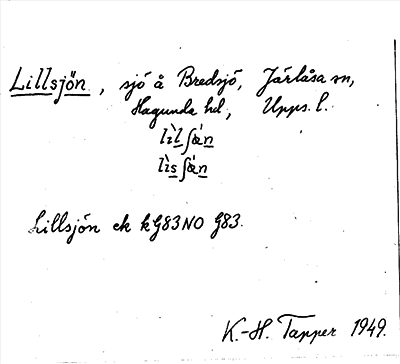 Lillsjön, sjö å Bredsjö, Järlåsa sn,
Hagunda hd, Upps. l.
lìlʃǽn
lìsʃǽn
Lillsjön ek kG83NO G83.
K.-H. Tapper 1949.